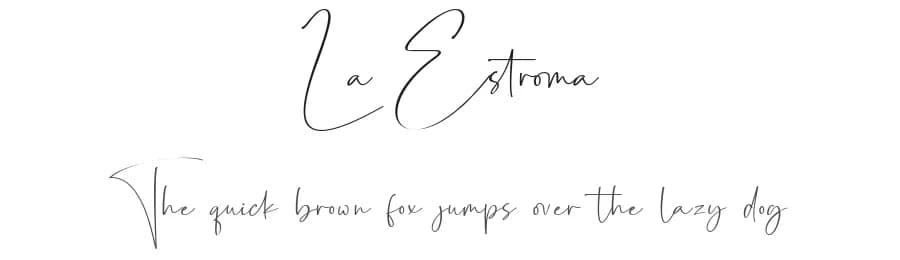 La Estroma
The quick brown fox jumps over the lazy dog